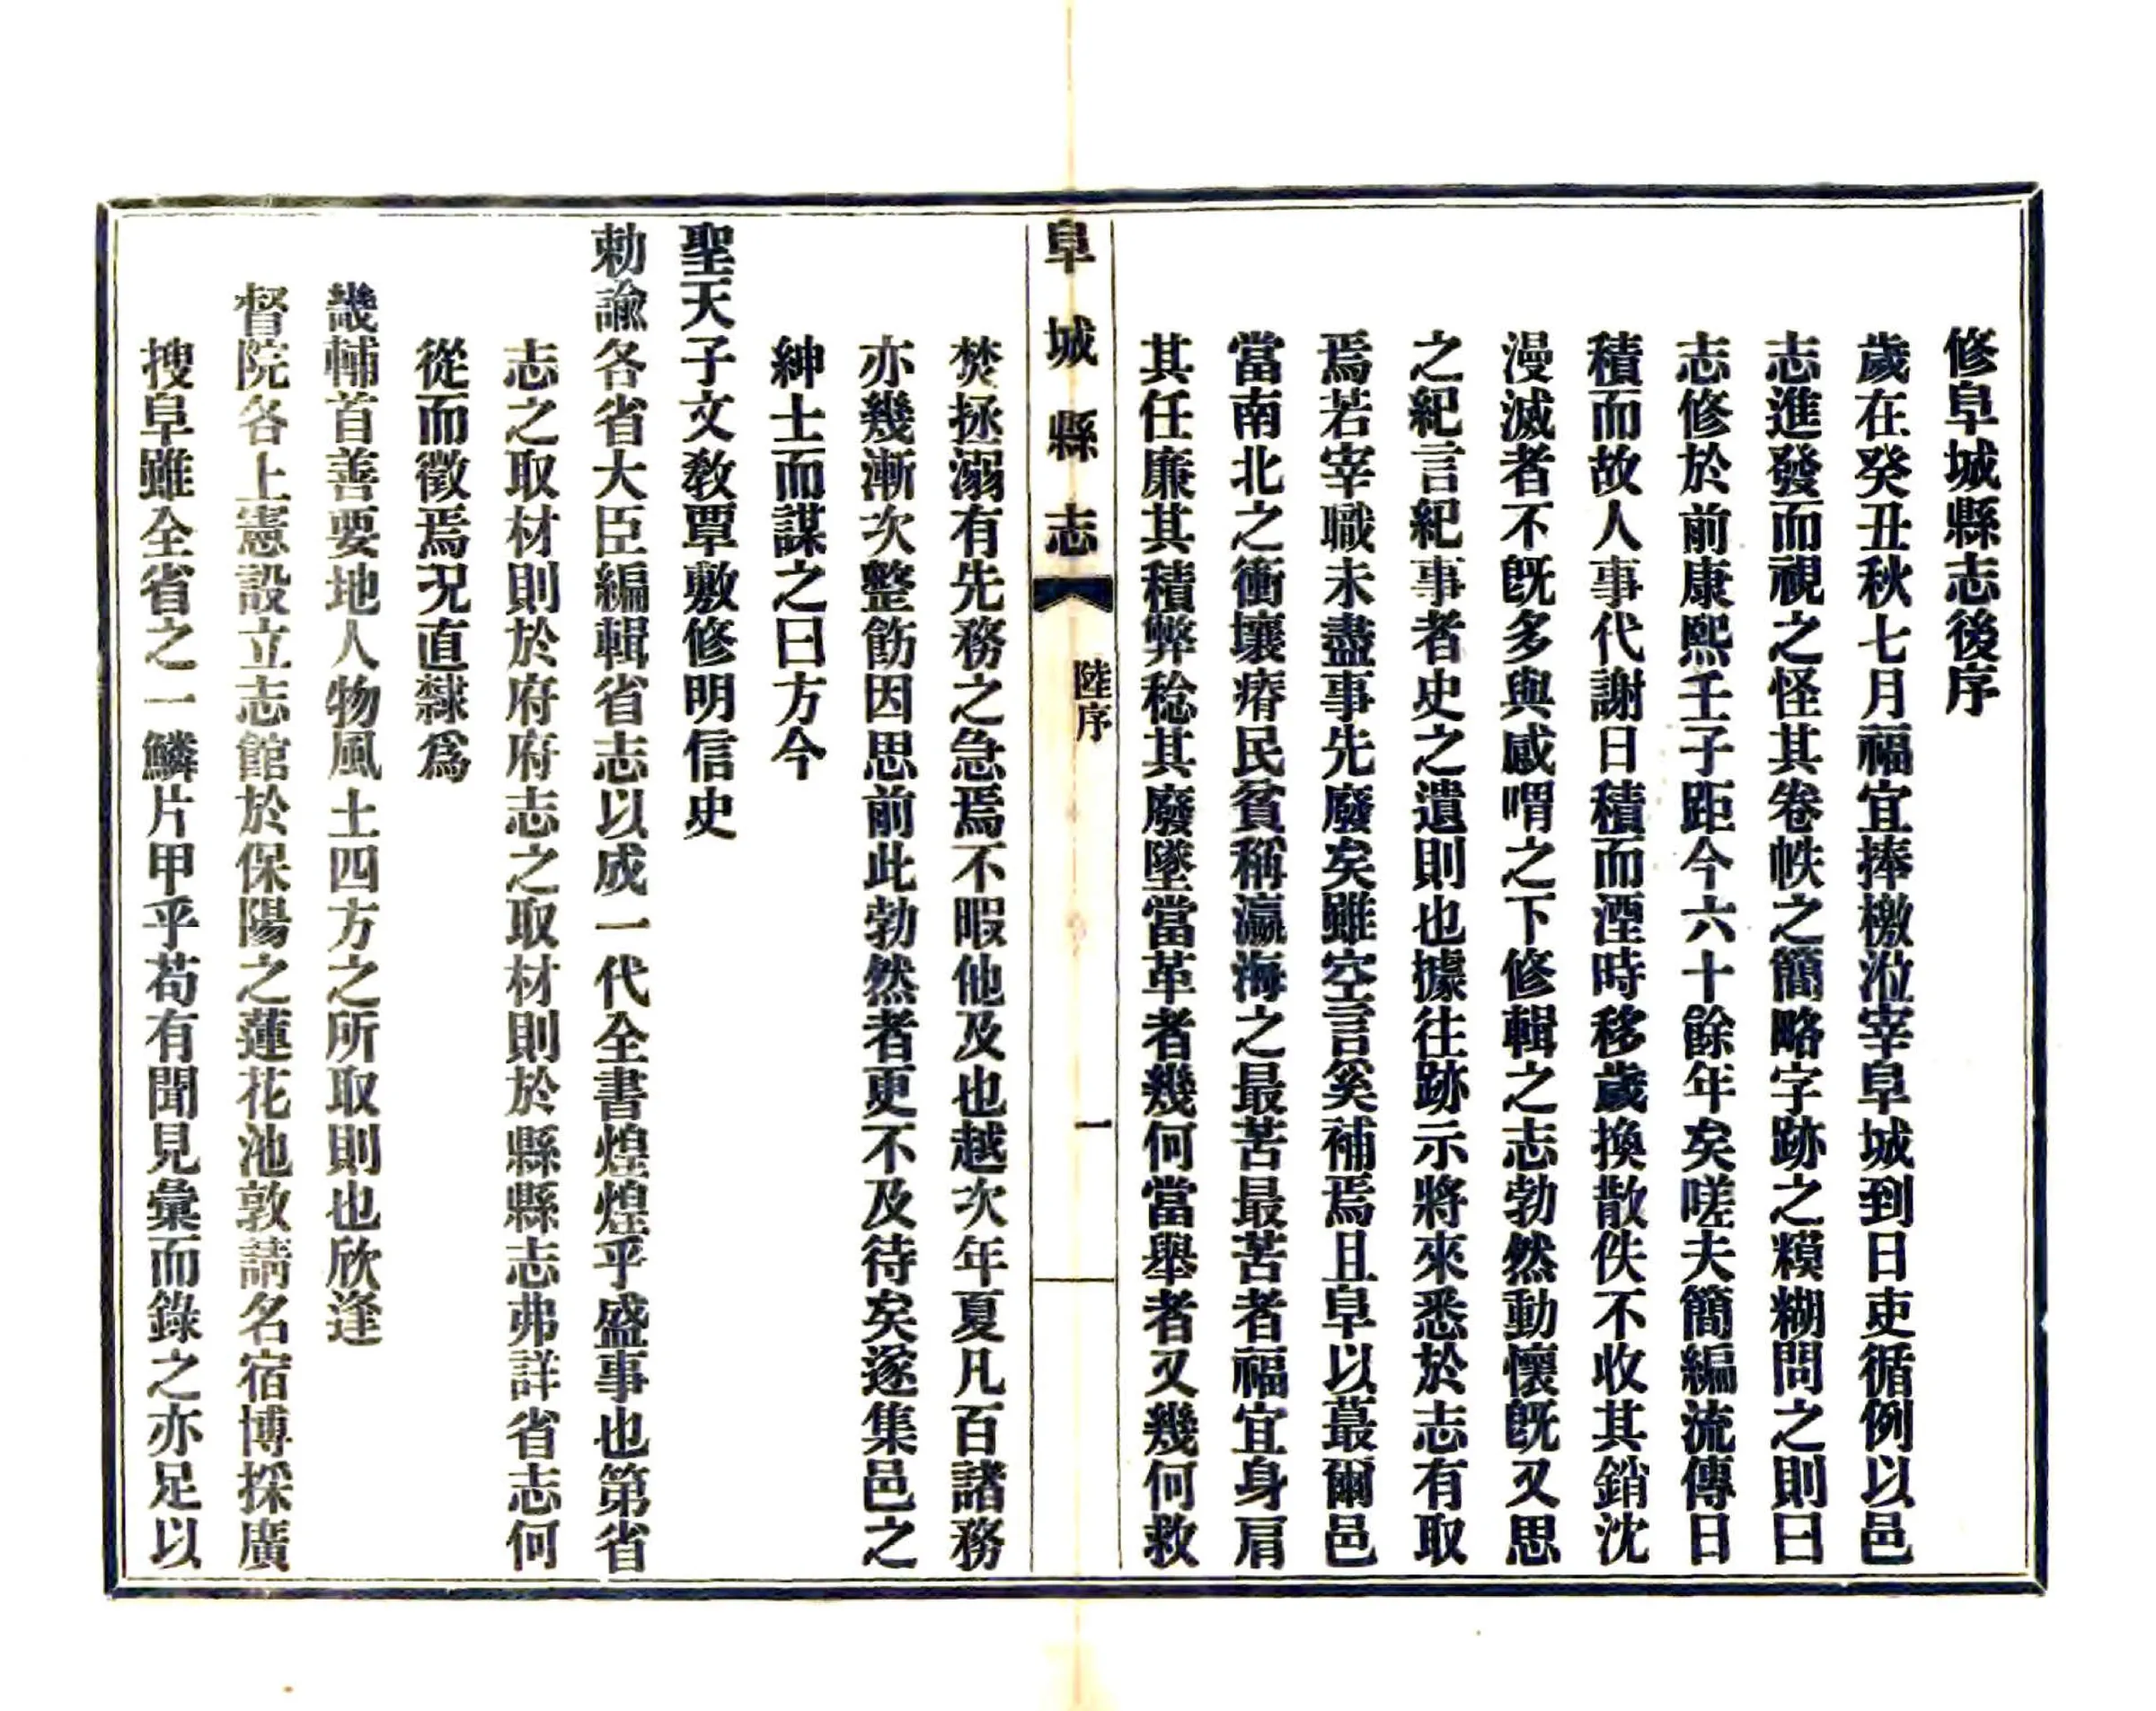 修阜城縣志後序
歲在癸丑秋七月福宜捧檄涖宰阜城到日吏循例以邑
志進發而視之怪其卷帙之簡略字跡之糢糊問之則曰
志修於前康熙壬子距今六十餘年矣嗟夫簡編流傳日
積而故人事代謝日積而湮時移歲換散佚不收其銷沈
漫滅者不既多與感喟之下修輯之志勃然動懷既又思
之紀言紀事者史之遺則也據往跡示將來悉於志有取
焉若宰職未盡事先廢矣雖空言奚補焉且阜以蕞爾邑
當南北之衝壤瘠民貧稱瀛海之最苦最苦者福宜身肩
其任廉其積弊稔其廢墜當革者幾何當舉者又幾何救
阜城縣志
陸序
一
焚拯溺有先務之急焉不暇他及也越次年夏凡百諸務
亦幾漸次整飭因思前此勃然者更不及待矣遂集邑之
紳士而謀之曰方今
聖天子文教覃敷修明信史
勅諭各省大臣編輯省志以成一代全書煌煌乎盛事也第省
志之取材則於府府志之取材則於縣縣志弗詳省志何
從而徵焉況直隸爲
畿輔首善要地人物風土四方之所取則也欣逢
督院各上憲設立志館於保陽之蓮花池敦請名宿博採廣
搜阜雖全省之一鱗片甲乎苟有聞見彙而錄之亦足以